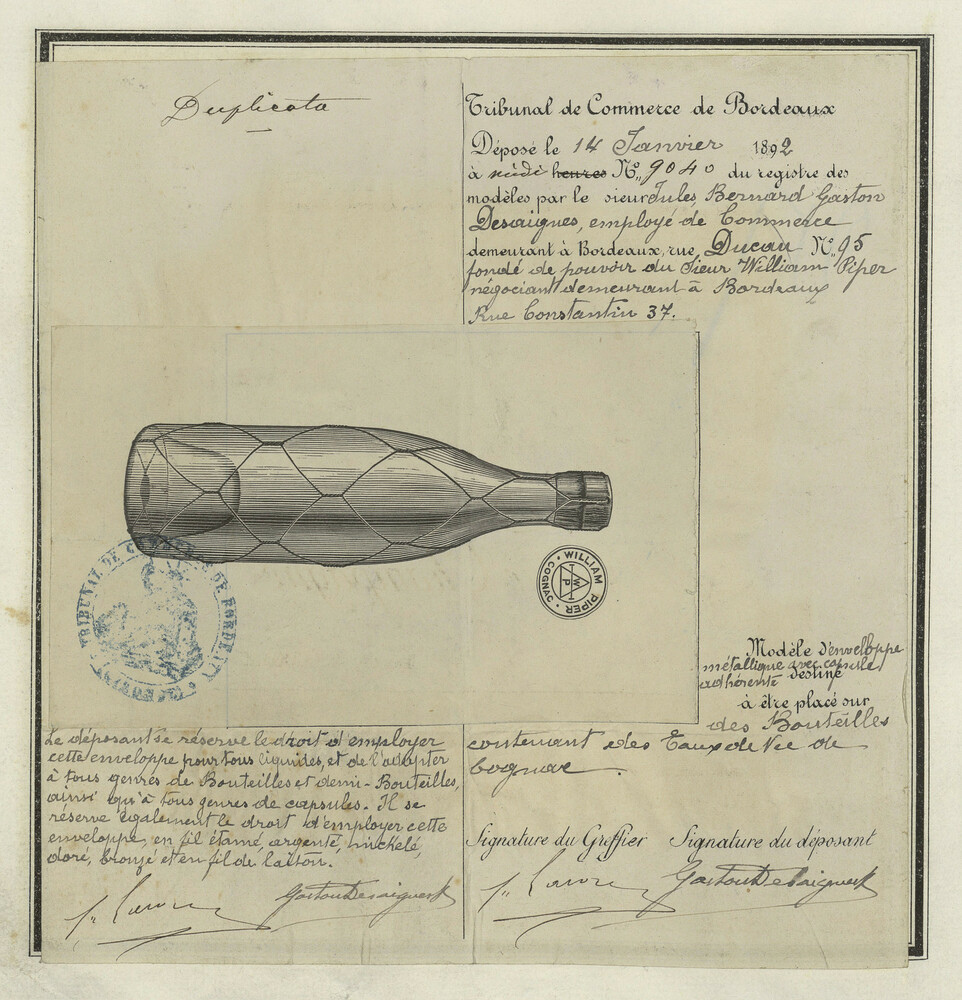 Duplicata
Tribunal de Commerce de Bordeaux
Déposé le 14 Janvier 1892
à midi heures N°. 9040 du registre des
modèles par le sieur Jules, Bernard Gaston
Desaigues, employé de Commerce
demeurant à Bordeaux, rue Ducau N° 95
fondé de pouvoir du Sieur William Piper
négociant demeurant à Bordeaux
Rue Constantin 37.
WILLIAM PIPER
COGNAC
W P
TRIBUNAL DE COMMERCE DE BORDEAUX
Modèle d'enveloppe
métallique avec capsule
adhérente destiné
à être placé sur
des Bouteilles
contenant des Eaux de Vie de
Cognac.
Le déposant se réserve le droit d'employer
cette enveloppe pour tous liquides, et de l'adapter
à tous genres de Bouteilles et demi-Bouteilles,
ainsi qu'à tous genres de capsules. Il se
réserve également le droit d'employer cette
enveloppe, en fil étamé, argenté, nickelé,
doré, bronzé et en fil de laiton.
Signature du Greffier Signature du déposant